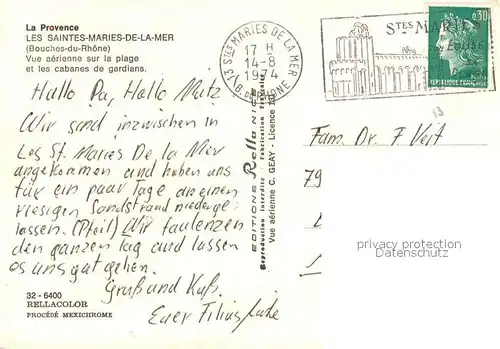 La Provence
LES SAINTES-MARIES-DE-LA-MER
(Bouches-du-Rhône)
Vue aérienne sur la plage
et les cabanes de gardians.
Hallo Pa, Hallo Mutz
Wir sind inzwischen in
Les St. Maries De la Mer
angekommen und haben uns
für ein paar Tage an einen
riesigen Sandstrand niederge-
lassen. (Pfeil) Wir faulenzen
den ganzen Tag und lassen
es uns gut gehen.
Gruß und Kuß.
Euer Filius
32 - 6400
RELLACOLOR
PROCÉDÉ MEXICHROME
EDITIONS Rella NICE
Reproduction interdite Fabrication Française
Vue aérienne C. GEAY - Licence
13 STES MARIES DE LA MER
17 H
14-8
1974
B. DU RHONE
STES MARIES
0,30
REPUBLIQUE FRANCAISE
Fam. Dr. F Veit
79
privacy protection
Datenschutz